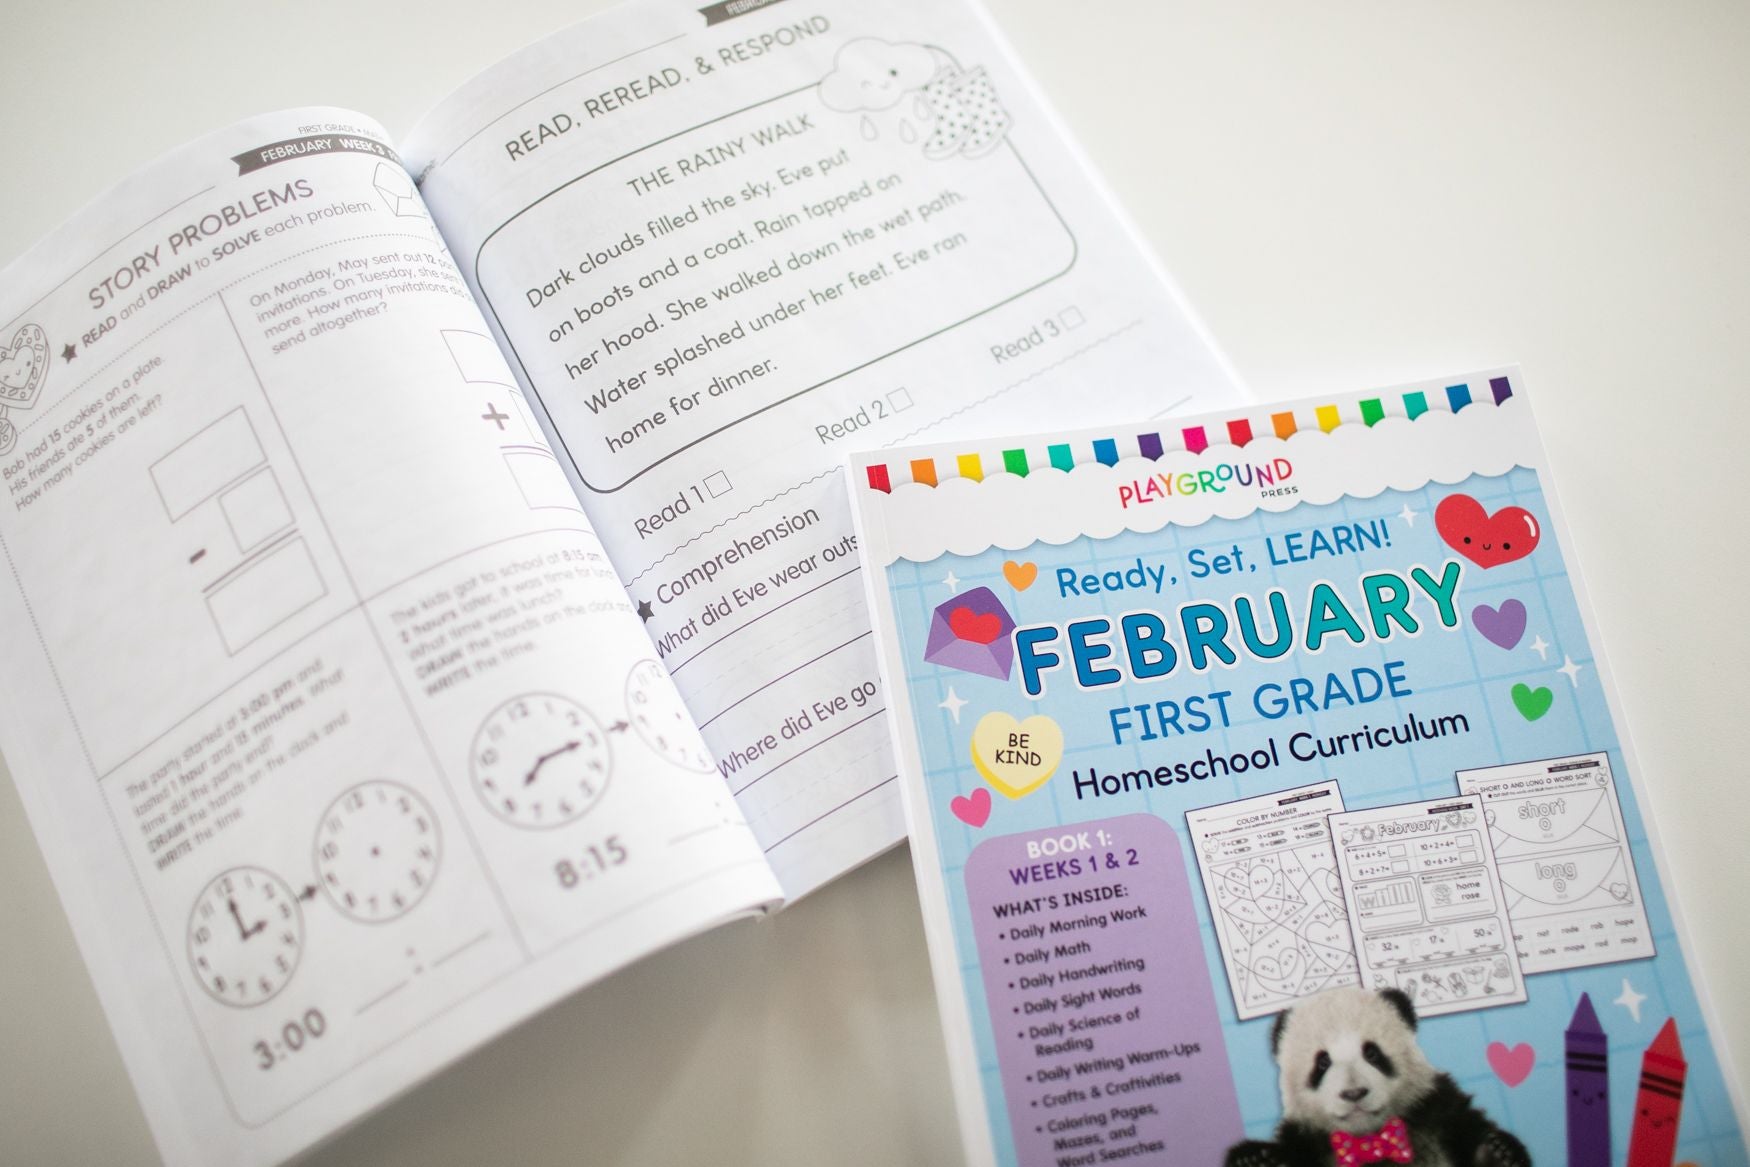 FIRST GRADE •
FEBRUARY WEEK 3
STORY PROBLEMS
★ READ and DRAW to SOLVE each problem.
Bob had 15 cookies on a plate.
His friends ate 5 of them.
How many cookies are left?
-
On Monday, May sent out 12
invitations. On Tuesday, she sent
more. How many invitations did
send altogether?
+
The party started at 3:00 pm and
lasted 1 hour and 15 minutes. What
time did the party end?
DRAW the hands on the clock and
WRITE the time.
3:00
:
The kids got to school at 8:15 am.
2 hours later, it was time for lunch.
What time was lunch?
DRAW the hands on the clock and
WRITE the time.
8:15
:
READ, REREAD, & RESPOND
THE RAINY WALK
Dark clouds filled the sky. Eve put
on boots and a coat. Rain tapped on
her hood. She walked down the wet path.
Water splashed under her feet. Eve ran
home for dinner.
Read 1
Read 2
Read 3
★ Comprehension
What did Eve wear
Where did Eve go
PLAYGROUND
PRESS
Ready, Set, LEARN!
FEBRUARY
FIRST GRADE
Homeschool Curriculum
BE
KIND
BOOK 1:
WEEKS 1 & 2
WHAT'S INSIDE:
• Daily Morning Work
• Daily Math
• Daily Handwriting
• Daily Sight Words
• Daily Science of
Reading
• Daily Writing Warm-Ups
• Crafts & Craftivities
• Coloring Pages,
Mazes, and
Word Searches
COLOR BY NUMBER
February
6+4+5=
10+2+4=
8+2+7=
10+6+3=
home
rose
32
17
50
SHORT O AND LONG O WORD SORT
short
o
long
o
not rode rob hope
note mope rod mop